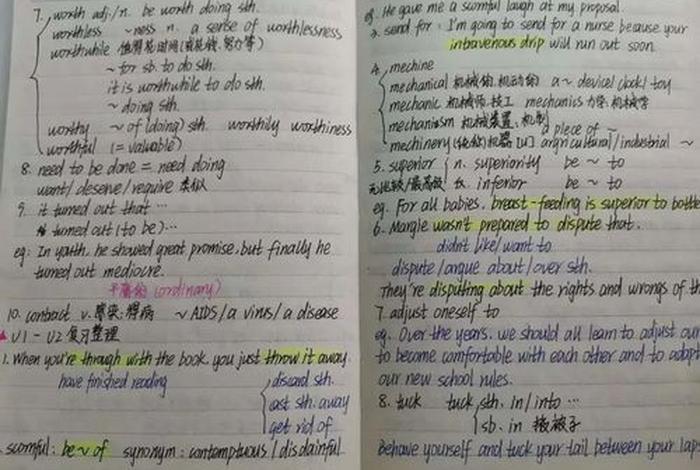 7. worth adj./n. be worth doing sth.
worthless ~ness n. a sense of worthlessness
worthwhile 值得花时间(或花钱、努力等)
~ for sb. to do sth.
it is worthwhile to do sth.
~ doing sth.
worthy ~ of (doing) sth. worthily worthiness
worthful (= valuable)
8. need to be done = need doing
want/deserve/require 类似
9. it turned out that ...
turned out (to be)...
eg: In youth, he showed great promise, but finally he
turned out mediocre.
平庸的 (ordinary)
10. contract v. 感染; 得病 ~ AIDS/a virus/a disease
U1 - U2 复习整理
1. When you're through with the book, you just throw it away.
have finished reading
discard sth.
cast sth. away
get rid of
scornful: be ~ of synonym: contemptuous / disdainful
eg. He gave me a scornful laugh at my proposal.
3. send for: I'm going to send for a nurse because your
intravenous drip will run out soon.
4. mechine
mechanical 机械的, 机动的 a ~ device/clock/toy
mechanic 机械师, 技工 mechanics 力学, 机械学
mechanism 机械装置, 机制
a piece of ~
mechinery (统称)机器 [U] argricultural/industrial ~
5. superior n. superiority be ~ to
inferior be ~ to
eg. For all babies, breast-feeding is superior to bottle
6. Margie wasn't prepared to dispute that.
didn't like/want to
dispute/argue about/over sth.
They're disputing about the rights and wrongs of th
7. adjust oneself to
eg. Over the years, we should all learn to adjust our
to become comfortable with each other and to adapt
our new school rules.
8. tuck tuck sth. in/into ...
sb. in 掖被子
Behave yourself and tuck your tail between your